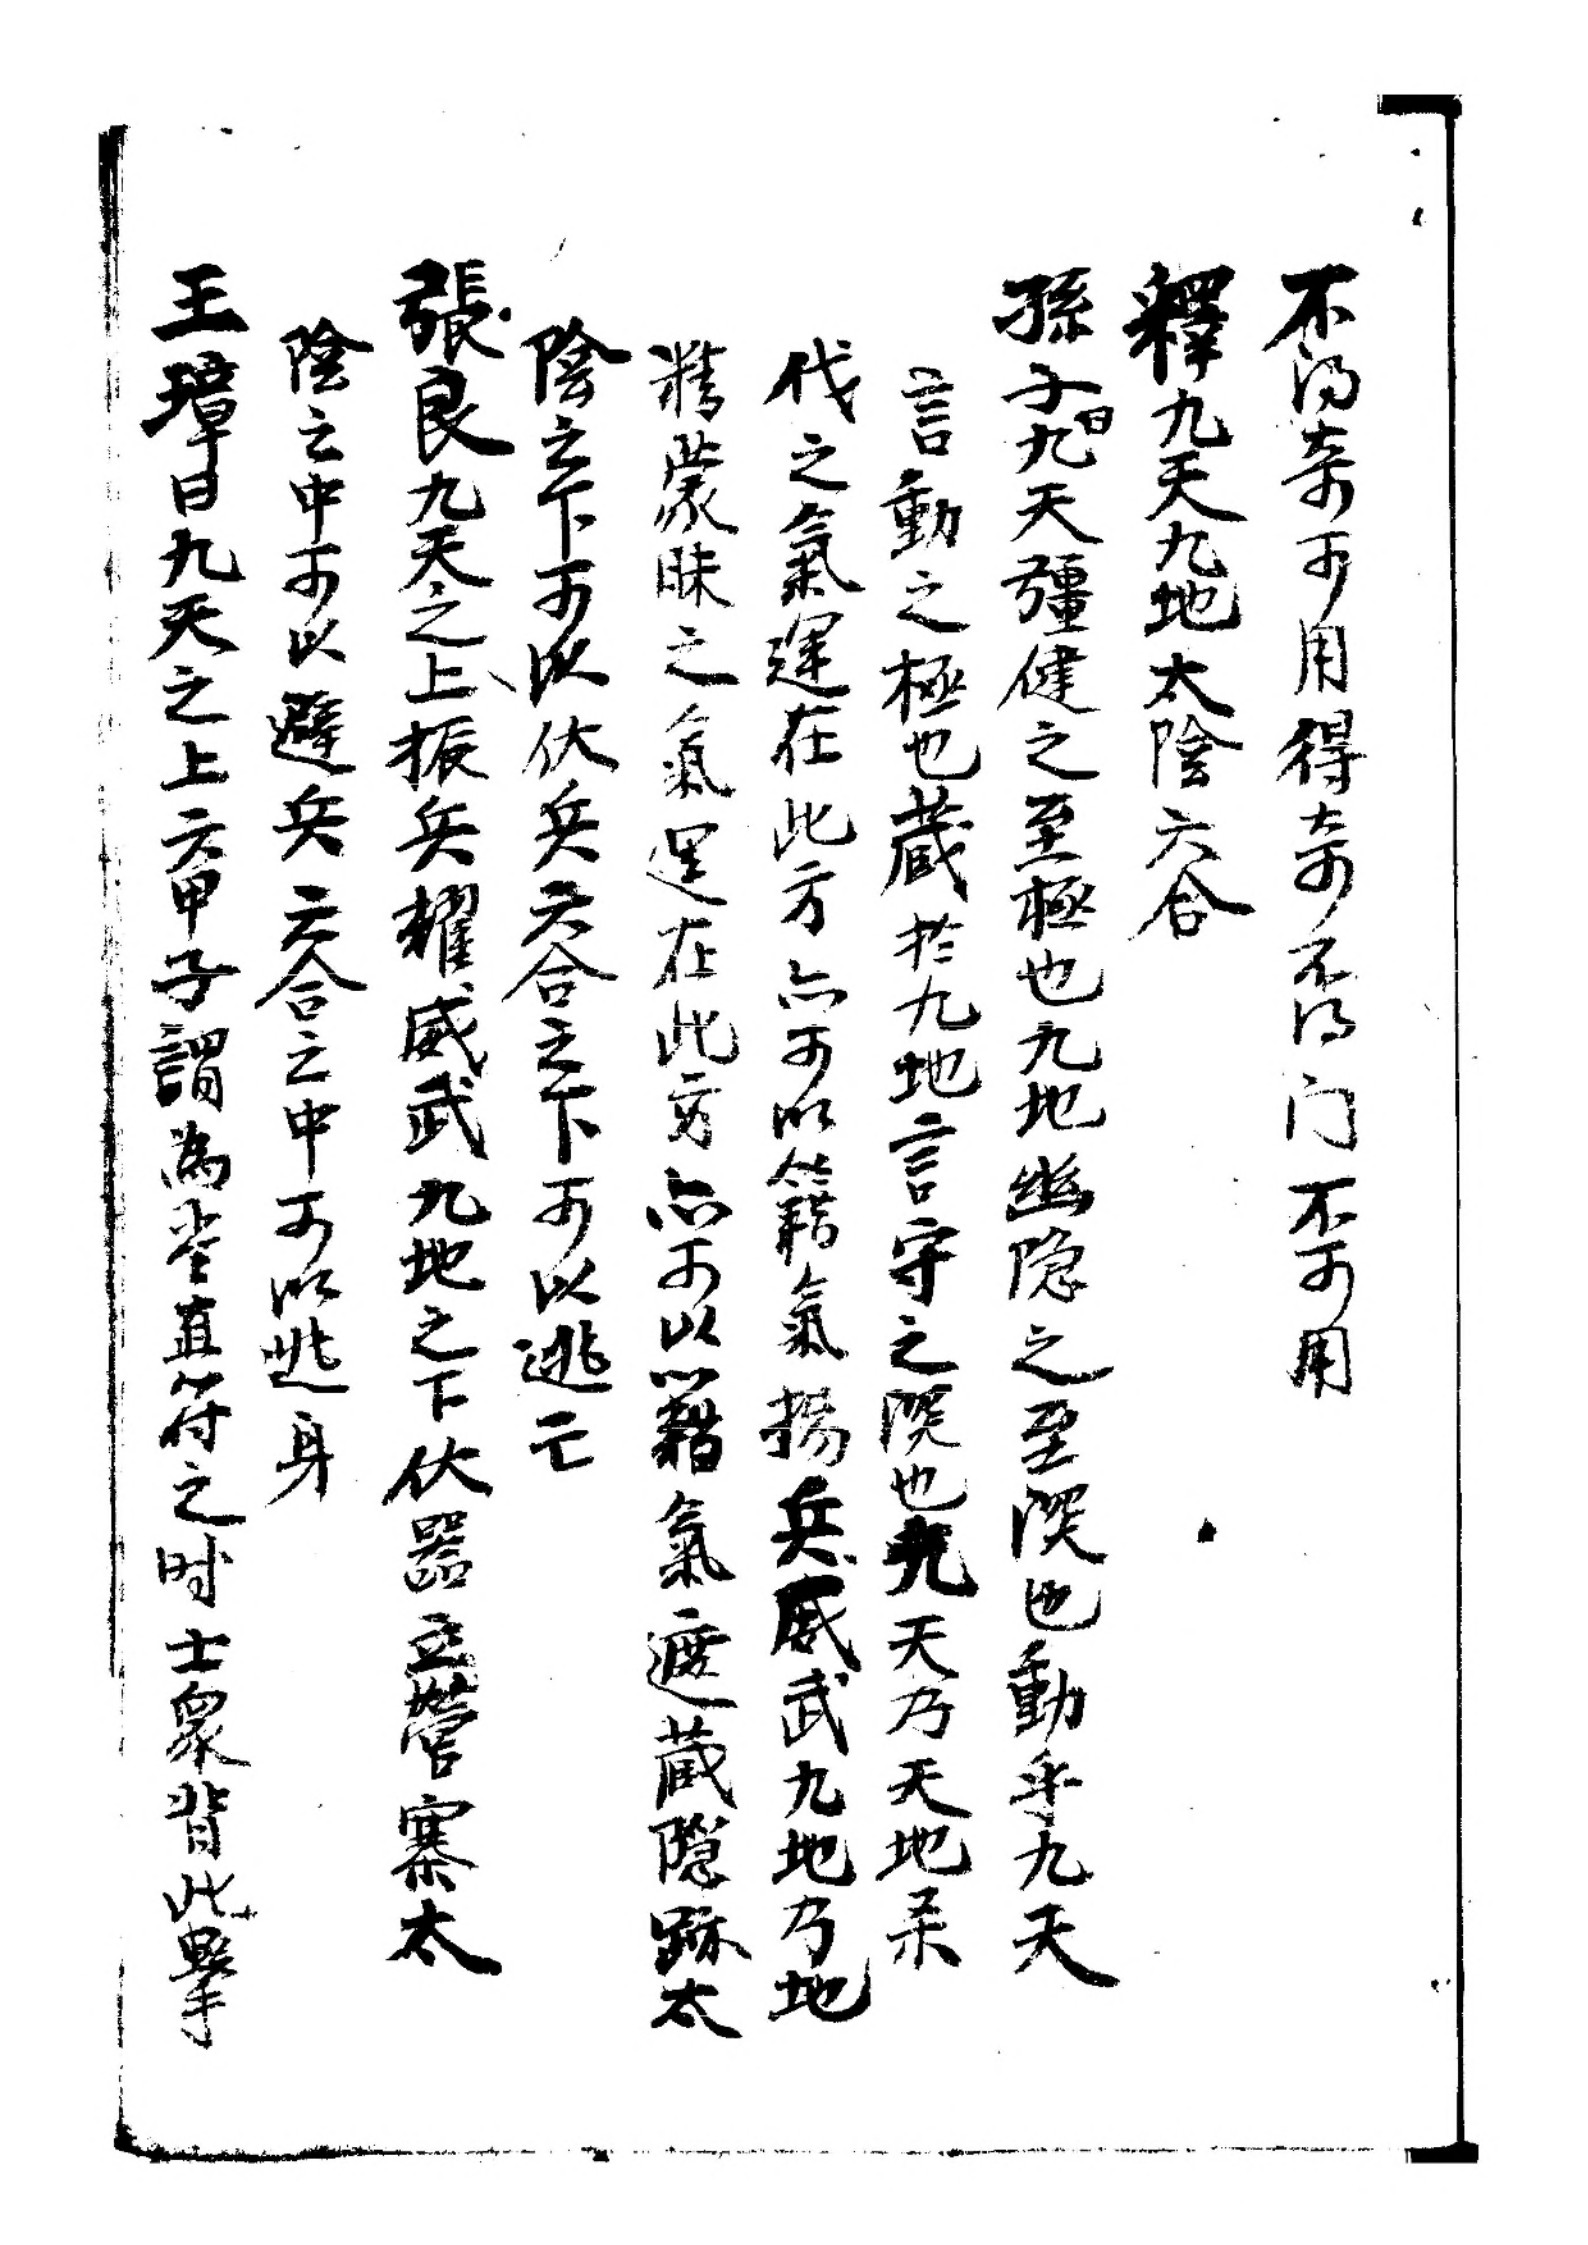 不得奇可用得奇不得门不可用
釋九天九地太陰六合
孫子曰九天彊健之至極也九地幽隐之至深也動乎九天
言動之極也藏扵九地言守之深也九天乃天地杀
伐之氣運在此方亦可以籍氣揚兵威武九地乃地
精蒙昧之氣運在此方亦可以籍氣遮藏隐跡太
陰之下可以伏兵六合之下可以逃亡
張良九天之上振兵耀威武九地之下伏器立营寨太
陰之中可以避兵六合之中可以逃身
王璋曰九天之上六甲子謂為坐直符之时士衆背此擊